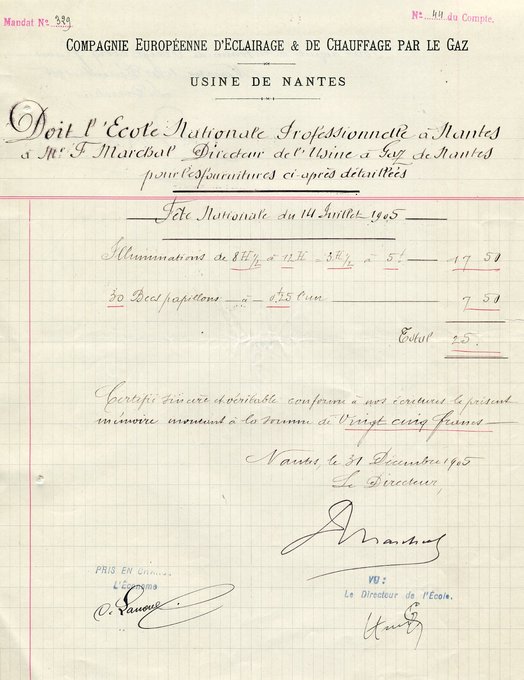 Mandat Nº 329
Nº 44 du Compte.
COMPAGNIE EUROPÉENNE D'ECLAIRAGE & DE CHAUFFAGE PAR LE GAZ
USINE DE NANTES
Doit l'Ecole Nationale Professionnelle à Nantes
à Mr F. Marchal Directeur de l'Usine à Gaz de Nantes
pour les fournitures ci-après détaillées
Fête Nationale du 14 Juillet 1905
Illuminations de 8H½ à 12H = 3H½ à 5f 17 50
30 Becs papillons - à - 0f25 l'un 7 50
Total 25.
Certifié sincère et véritable conforme à nos écritures le présent
mémoire montant à la somme de Vingt cinq francs
Nantes, le 31 Décembre 1905
Le Directeur,
Marchal
PRIS EN CHARGE
L'Econome
VU:
Le Directeur de l'École.